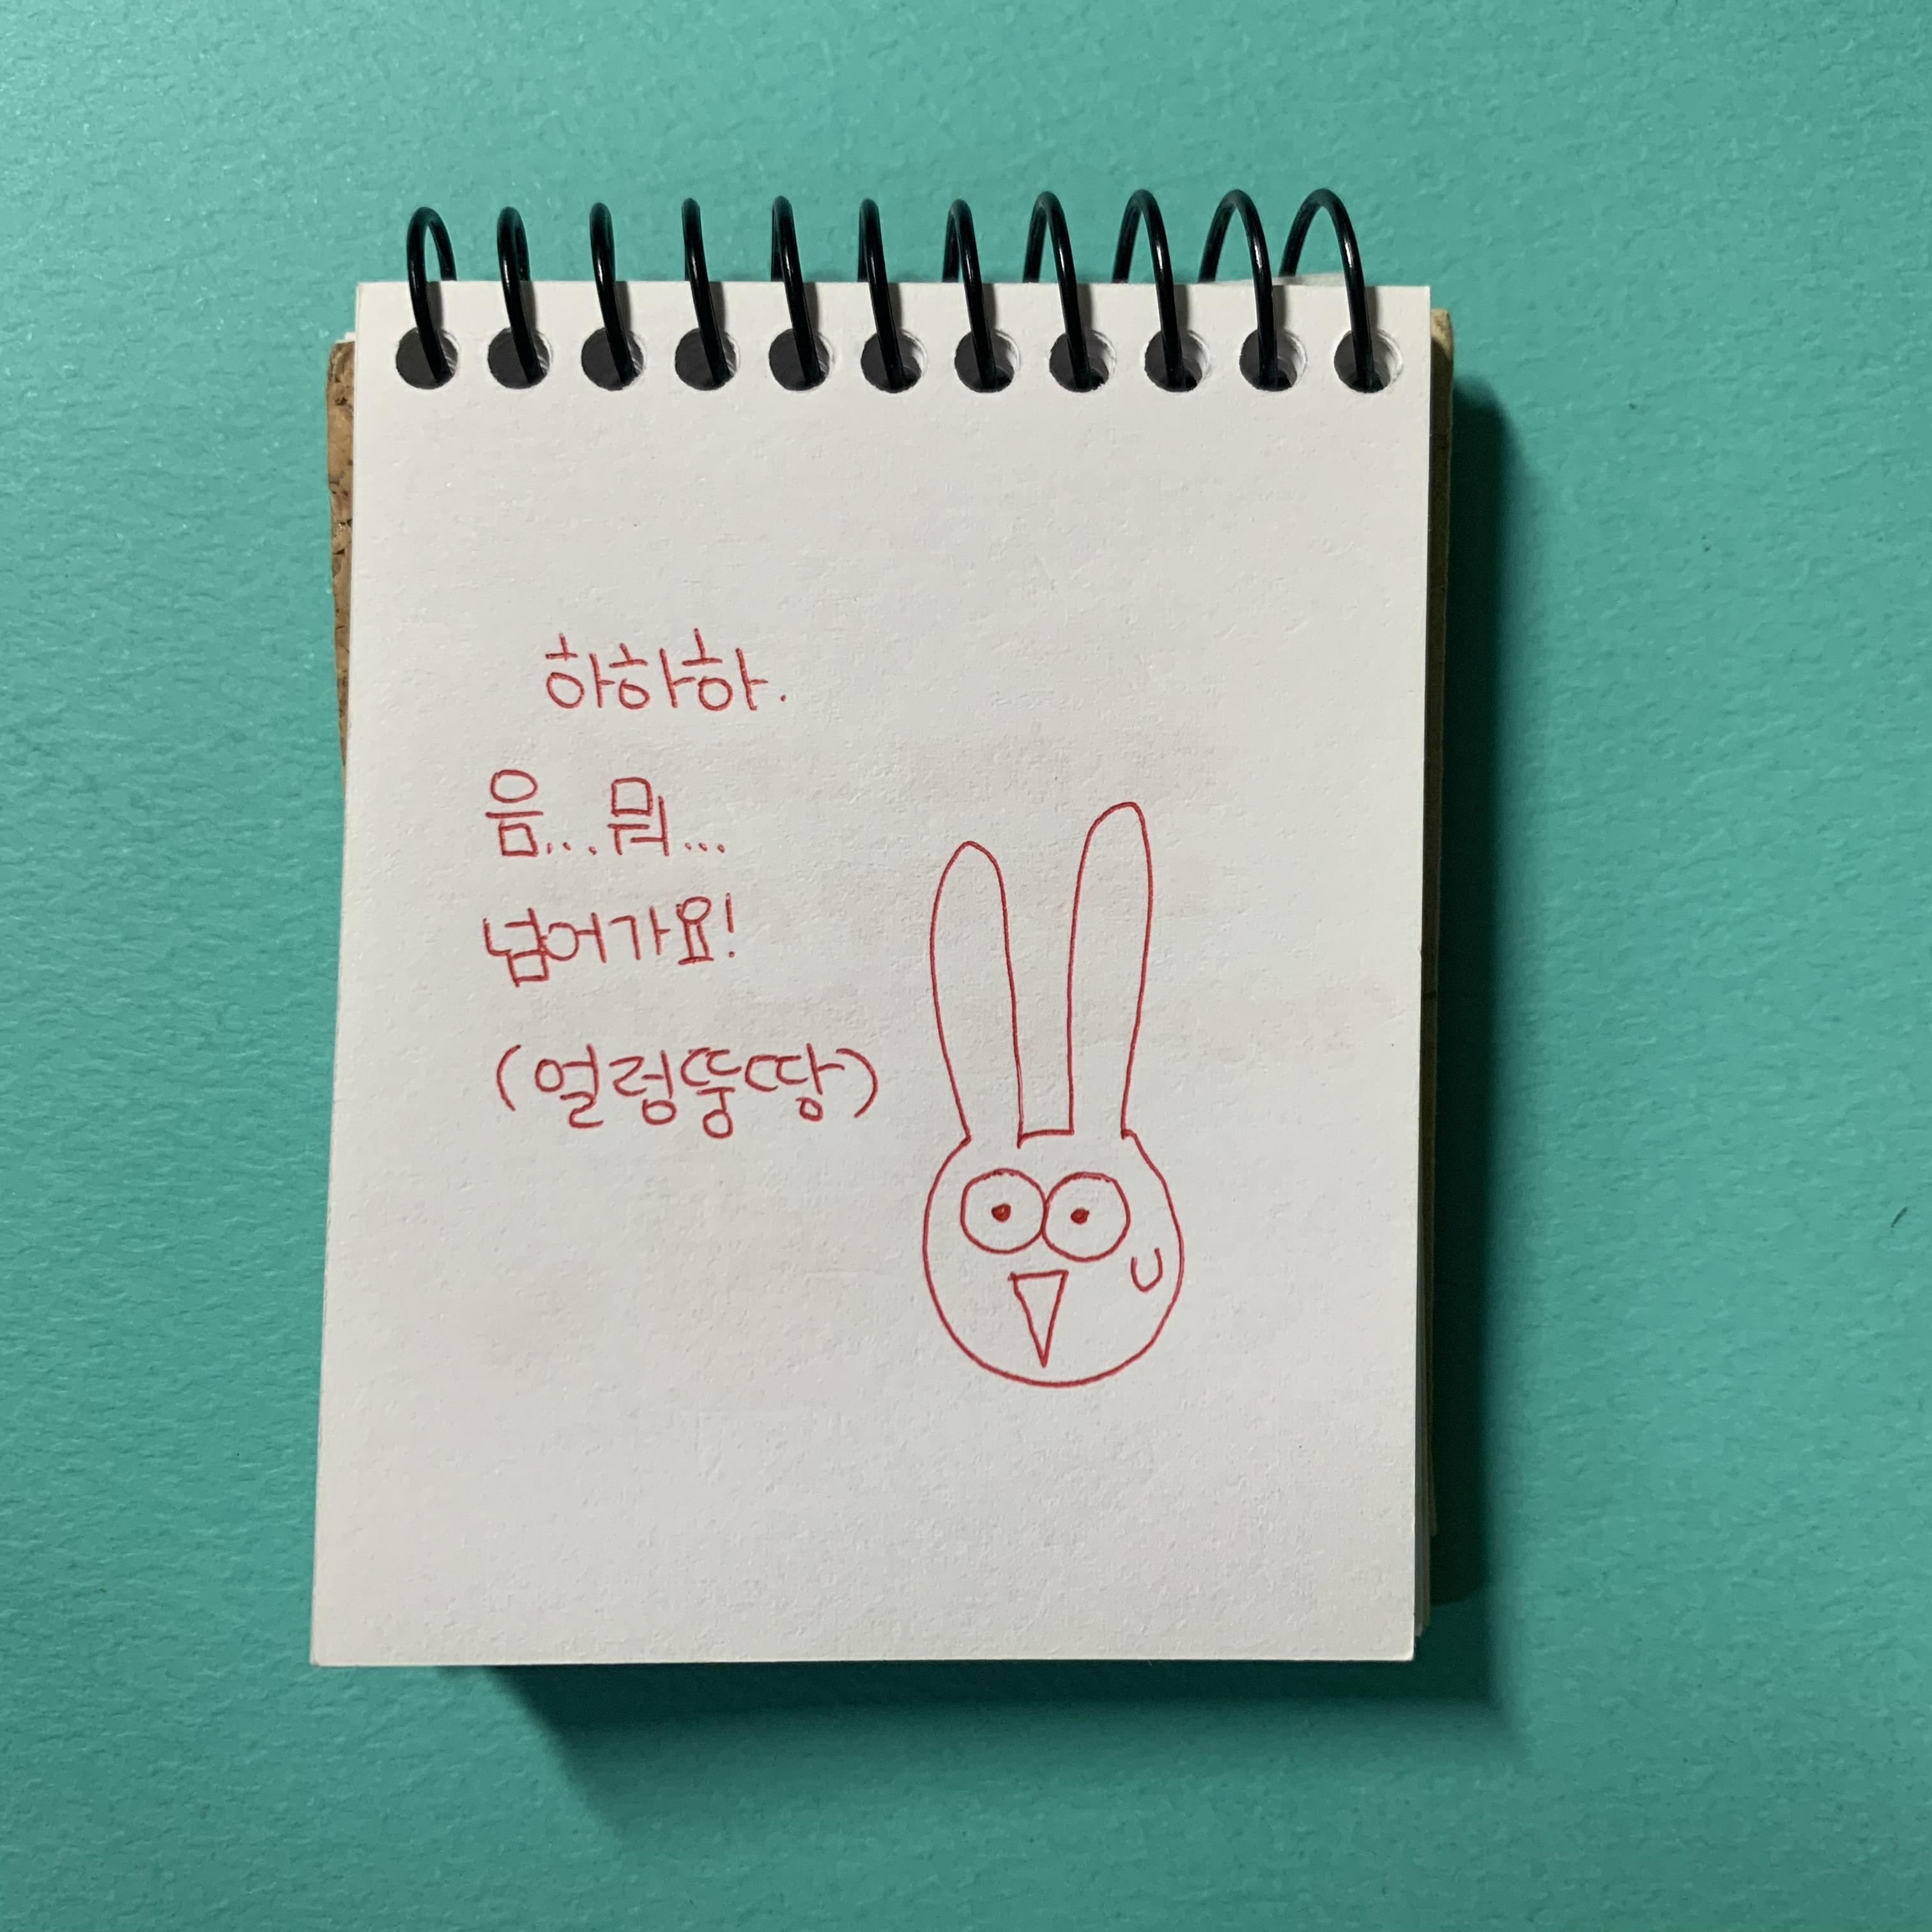 하하하.
음... 뭐...
넘어가요!
(얼렁뚱땅)